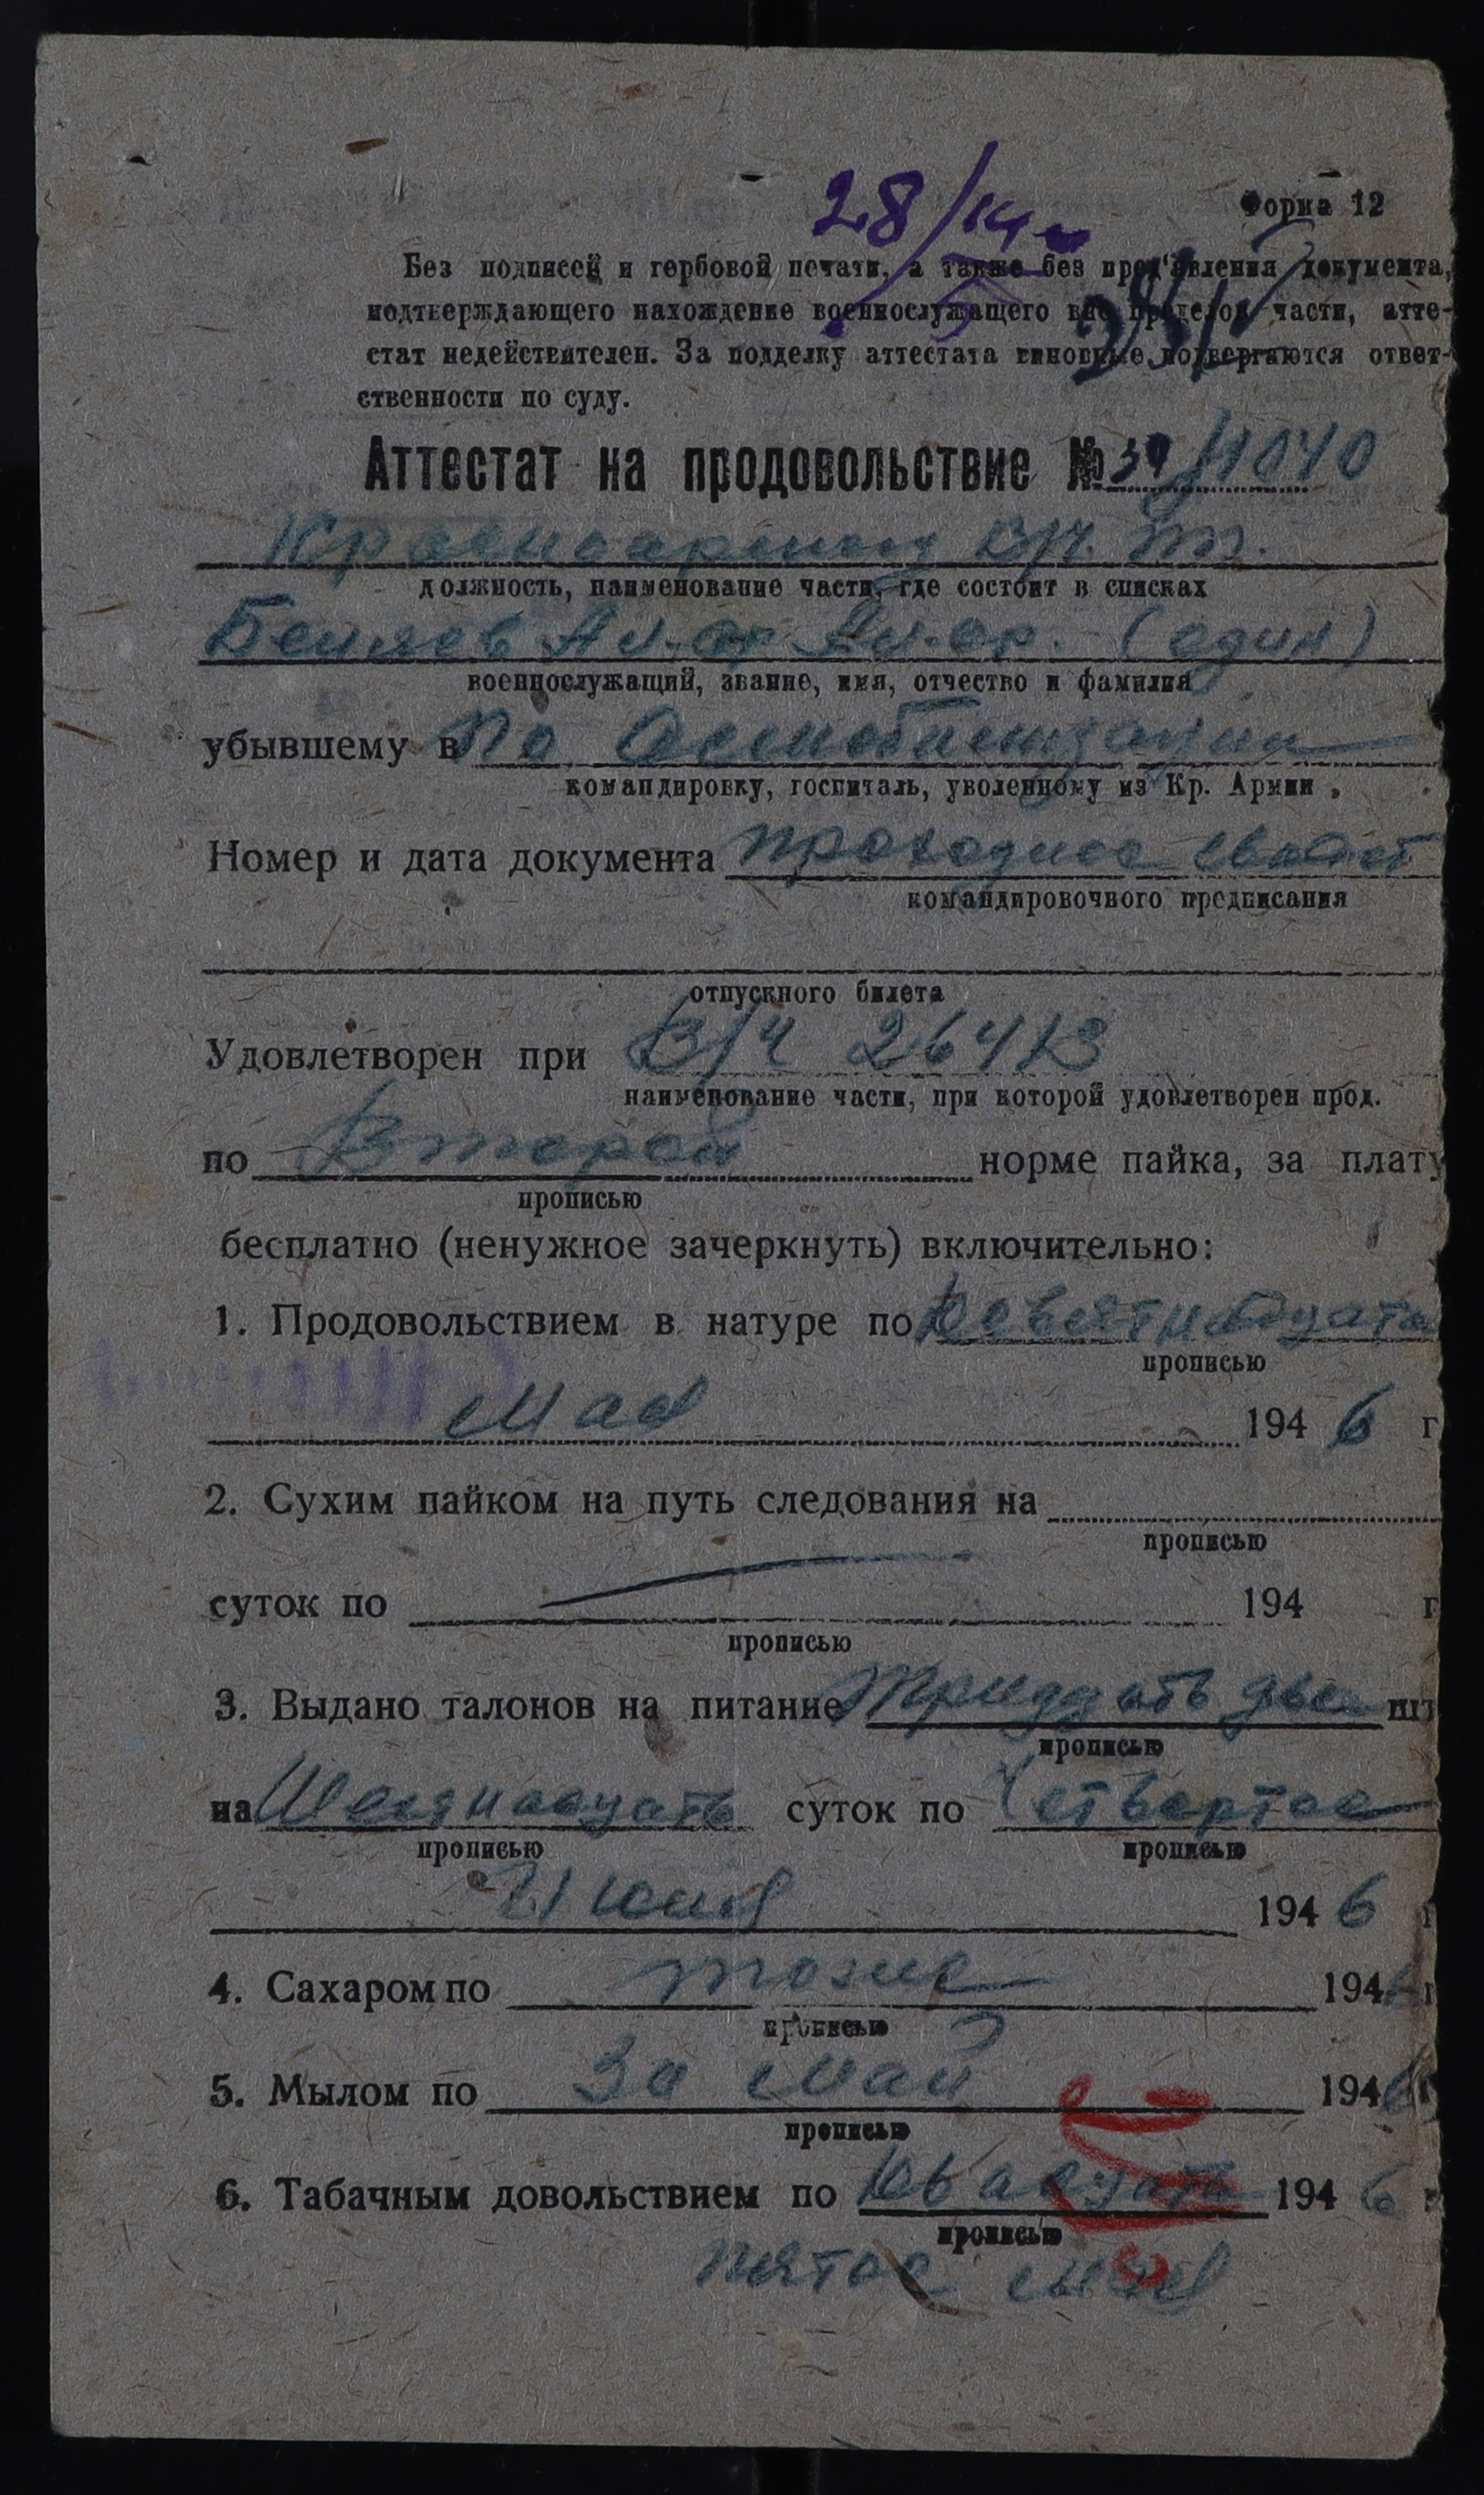 28/
Форма 12
Без подписей и гербовой печати, а также без пред'явления документа,
подтверждающего нахождение военнослужащего вне пределов части, атте-
стат недействителен. За подделку аттестата виновные подвергаются ответ-
ственности по суду.
Аттестат на продовольствие № 39/4040
В/ч.
должность, наименование части, где состоит в списках
Беляев Ал-др Ал-др. (один)
военнослужащий, звание, имя, отчество и фамилия
убывшему в По демобилизации
командировку, госпиталь, уволенному из Кр. Армии
Номер и дата документа проходное свидет
командировочного предписания
отпускного билета
Удовлетворен при В/Ч 26473
наименование части, при которой удовлетворен прод.
по Второй норме пайка, за плату
прописью
бесплатно (ненужное зачеркнуть) включительно:
1. Продовольствием в натуре по Девятнадцато
прописью
Мая 194 6 г
2. Сухим пайком на путь следования на
прописью
суток по 194 г
прописью
3. Выдано талонов на питание Тридцать два шт
прописью
на Шестнадцать суток по Четвертое
прописью прописью
Июня 194 6 г
4. Сахаром по тоже 1946 г
прописью
5. Мылом по За май 1946 г
прописью
6. Табачным довольствием по Двадцать 194 6 г
прописью
пятое мая